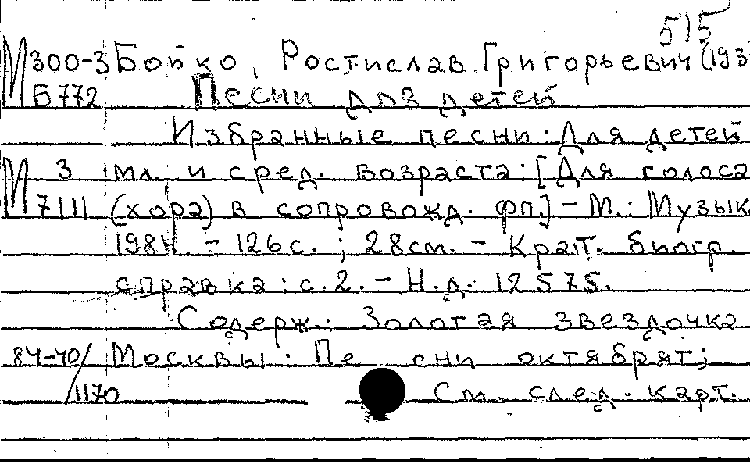 515
М 300-3 Бойко, Ростислав Григорьевич (193
Б 772 Песни для детей
Избранные песни: Для детей
М 3 мл. и сред. возраста: [Для голоса
7111 (хора) в сопровожд. фп.] - М.: Музык
1984. - 126 с. ; 28см. - Крат. биогр.
справка: с. 2. - Н.д. 12575.
Содерж.: Золотая звездочка
84-40/ Москвы: Пе сни октябрят;
1170 См. след. карт.